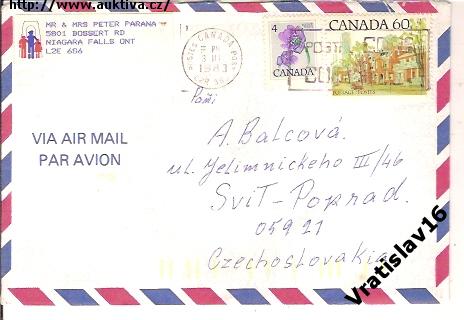 http://www.auktiva.cz/
MR & MRS PETER PARANA
5801 DOSSERT RD
NIAGARA FALLS ONT
L2E 6G6
POSTES CANADA POST
PM
1983
4
CANADA
CANADA 60
POSTAGE POSTES
Paní
VIA AIR MAIL
PAR AVION
A. Balcová.
ul. Jelimnickeho III/46
Svit-Poprad.
059 21
Czechoslovakia
Vratislav16